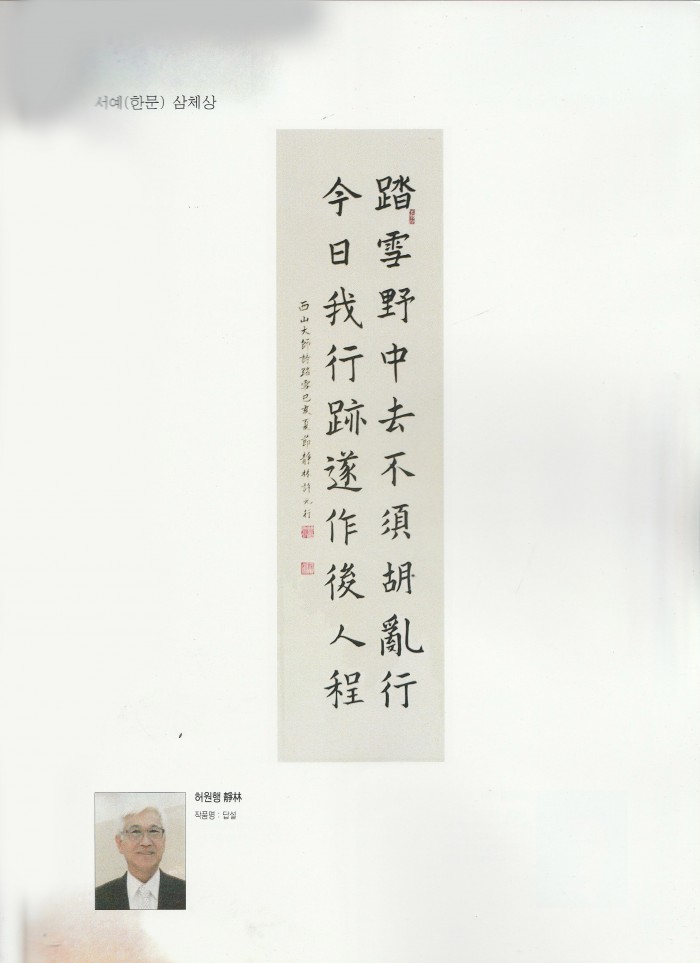 서예(한문) 삼체상
踏雪野中去不須胡亂行
今日我行跡遂作後人程
西山大師詩踏雪己亥夏節靜林許元行
허원행 靜林
작품명 : 답설